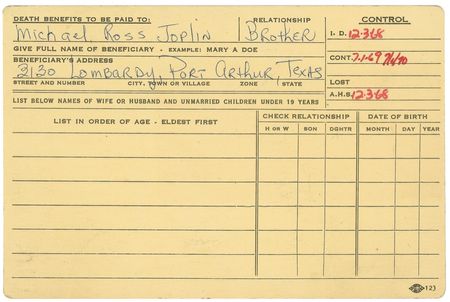 DEATH BENEFITS TO BE PAID TO: RELATIONSHIP CONTROL
Michael Ross Joplin Brother I. D. 12-368
GIVE FULL NAME OF BENEFICIARY - EXAMPLE: MARY A DOE
BENEFICIARY'S ADDRESS CONT. 7-1-69
3130 Lombardy, Port Arthur, Texas
STREET AND NUMBER CITY, TOWN OR VILLAGE ZONE STATE LOST
A.H.S. 12-368
LIST BELOW NAMES OF WIFE OR HUSBAND AND UNMARRIED CHILDREN UNDER 19 YEARS
LIST IN ORDER OF AGE - ELDEST FIRST CHECK RELATIONSHIP DATE OF BIRTH
H OR W SON DGHTR MONTH DAY YEAR
123